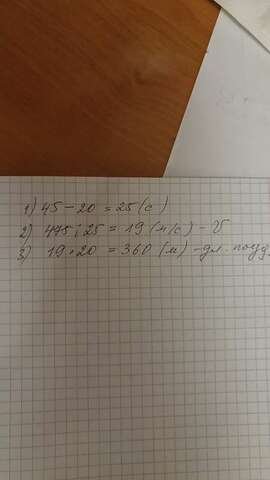 1) 45 - 20 = 25 (с)
2) 475 : 25 = 19 (м/с) - V
3) 19 · 20 = 360 (м) - дл. поезд